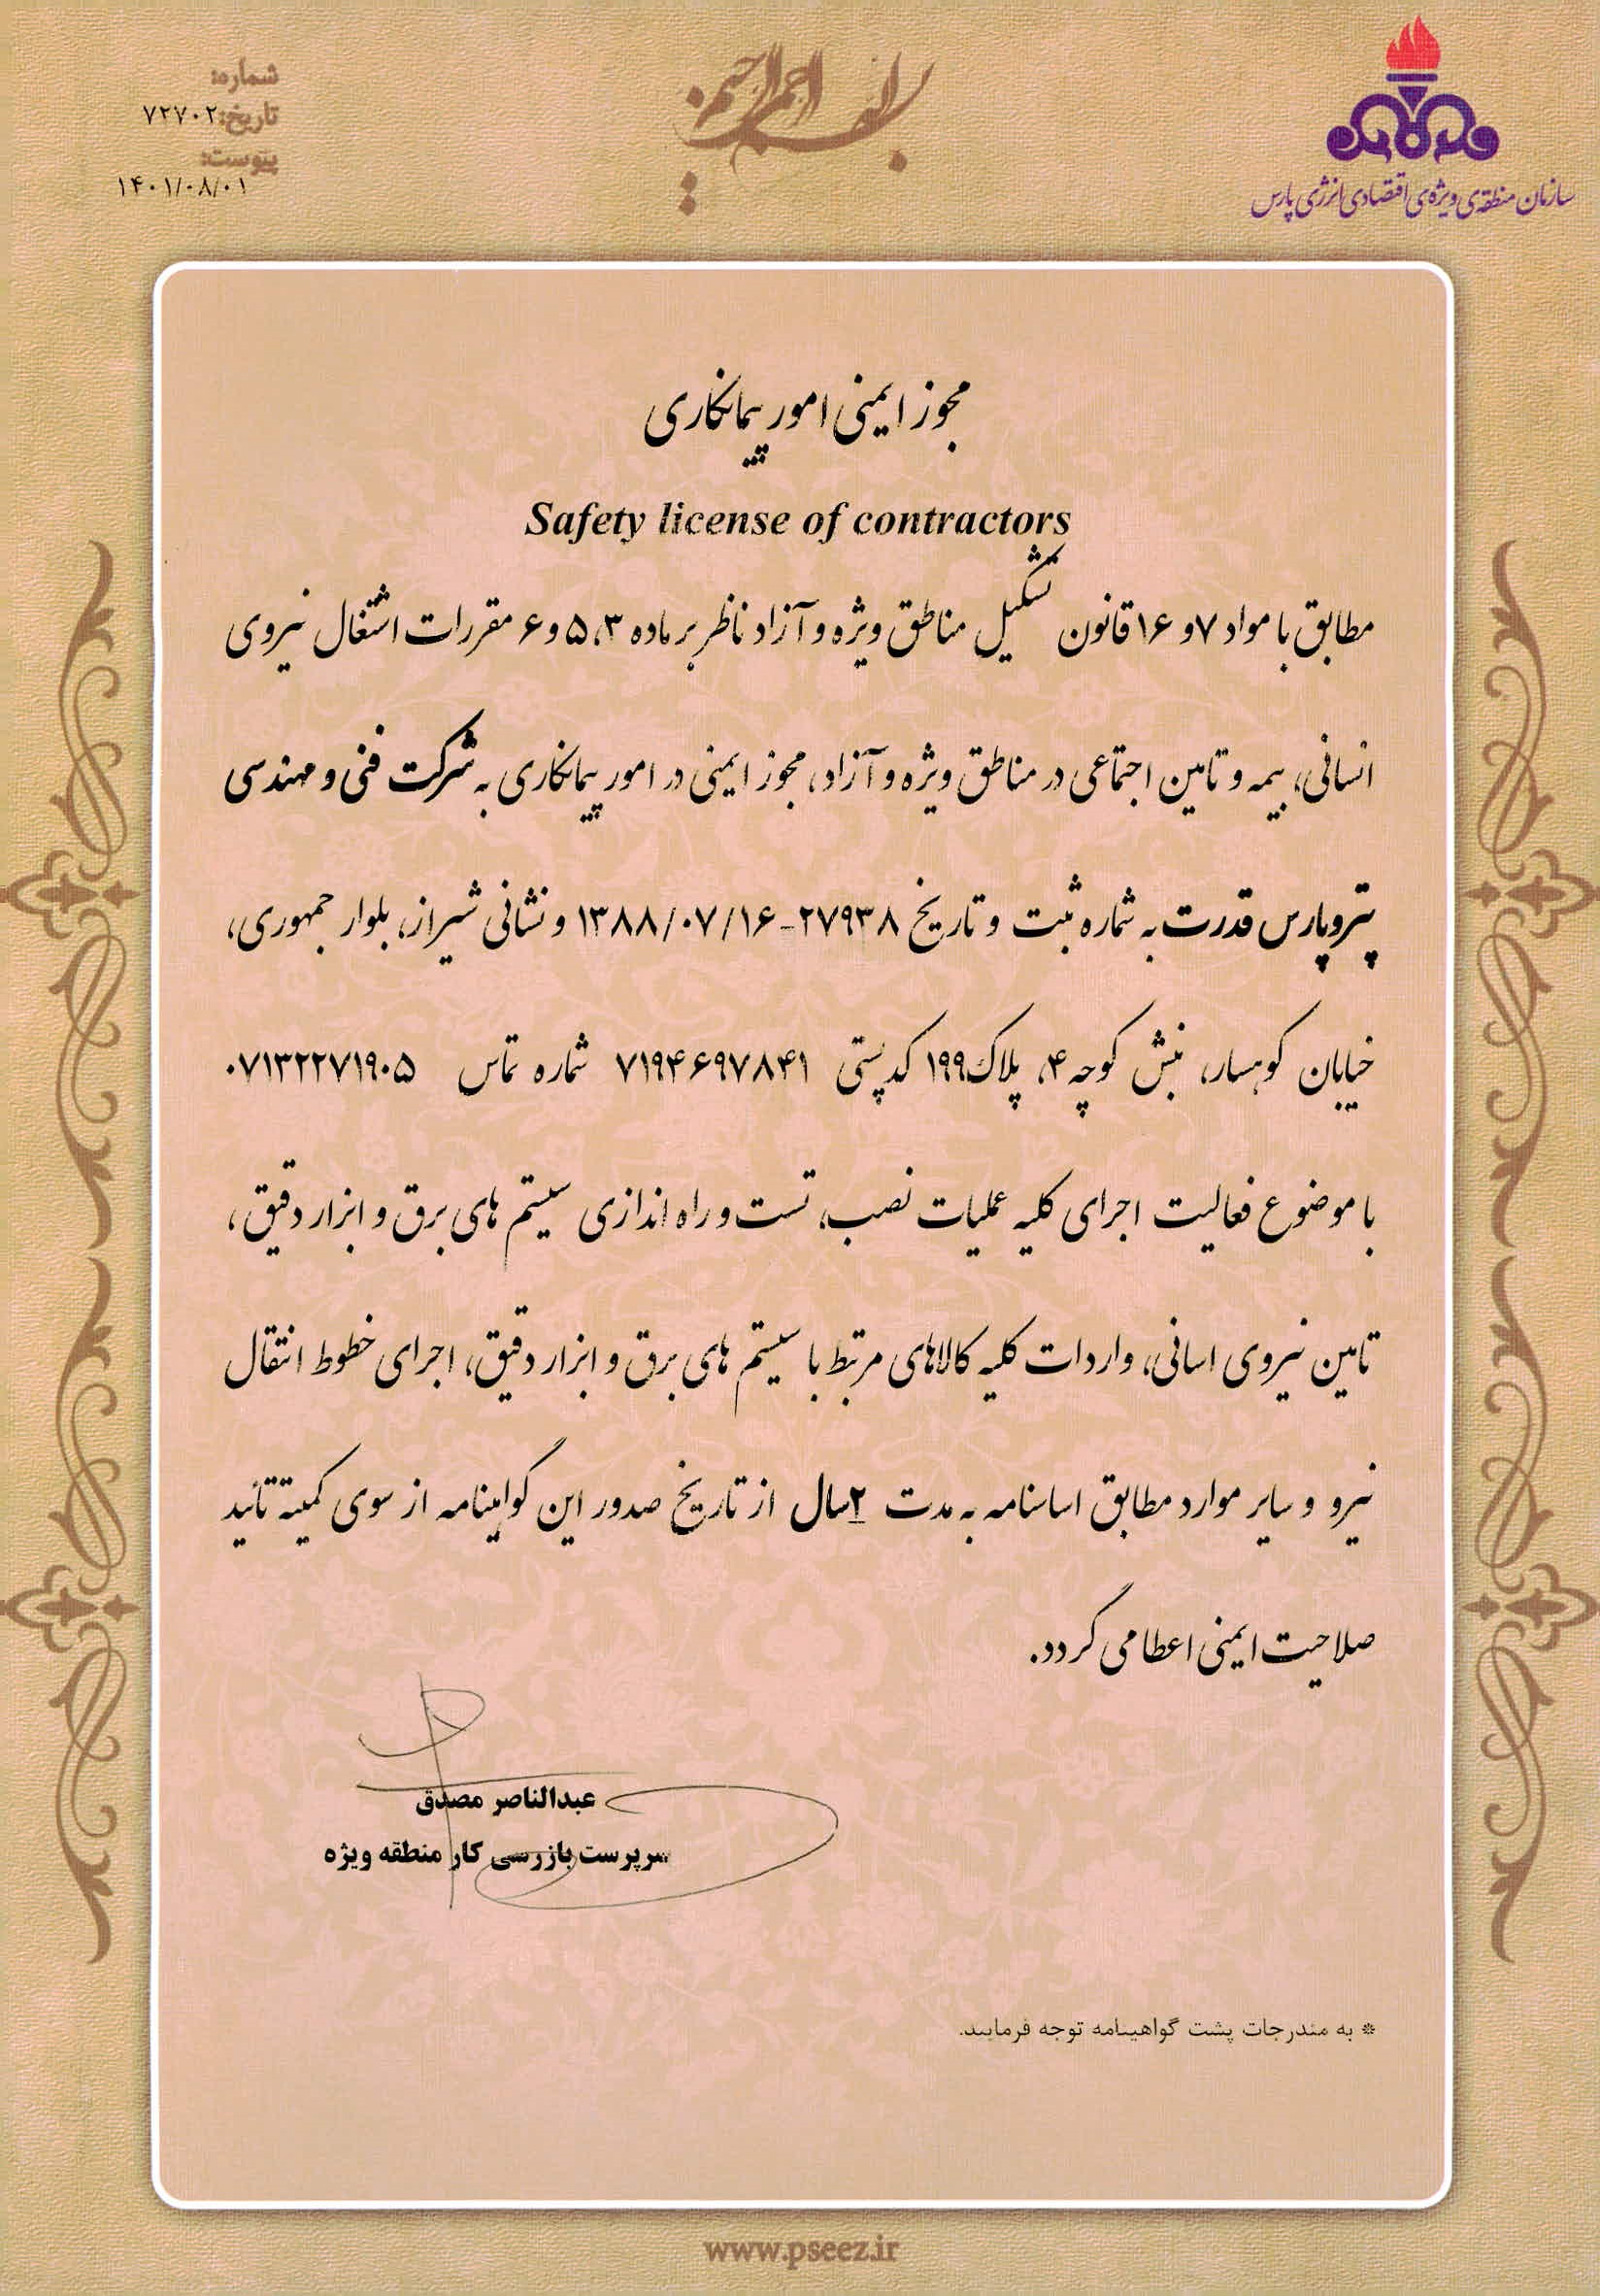 سازمان منطقه‌ی ویژه‌ی اقتصادی انرژی پارس
شماره:
تاریخ: ۷۲۷۰۲
پیوست:
۱۴۰۱/۰۸/۰۱
مجوز ایمنی امور پیمانکاری
Safety license of contractors
مطابق با مواد ۷ و ۱۶ قانون تشکیل مناطق ویژه و آزاد ناظر بر ماده ۳، ۵ و ۶ مقررات اشتغال نیروی
انسانی، بیمه و تامین اجتماعی در مناطق ویژه و آزاد، مجوز ایمنی در امور پیمانکاری به شرکت فنی و مهندسی
پترو پارس قدرت به شماره ثبت و تاریخ ۲۷۹۳۸-۱۳۸۸/۰۷/۱۶ و نشانی شیراز، بلوار جمهوری،
خیابان کوهسار، نبش کوچه ۴، پلاک ۱۹۹ کد پستی ۷۱۹۴۶۹۷۸۴۱ شماره تماس ۰۷۱۳۲۲۷۱۹۰۵
با موضوع فعالیت اجرای کلیه عملیات نصب، تست و راه اندازی سیستم های برق و ابزار دقیق،
تامین نیروی اسانی، واردات کلیه کالاهای مرتبط با سیستم های برق و ابزار دقیق، اجرای خطوط انتقال
نیرو و سایر موارد مطابق اساسنامه به مدت ۲ سال از تاریخ صدور این گواهینامه از سوی کمیته تائید
صلاحیت ایمنی اعطا می گردد.
عبدالناصر مصدق
سرپرست بازرسی کار منطقه ویژه
* به مندرجات پشت گواهینامه توجه فرمایند.
www.pseez.ir